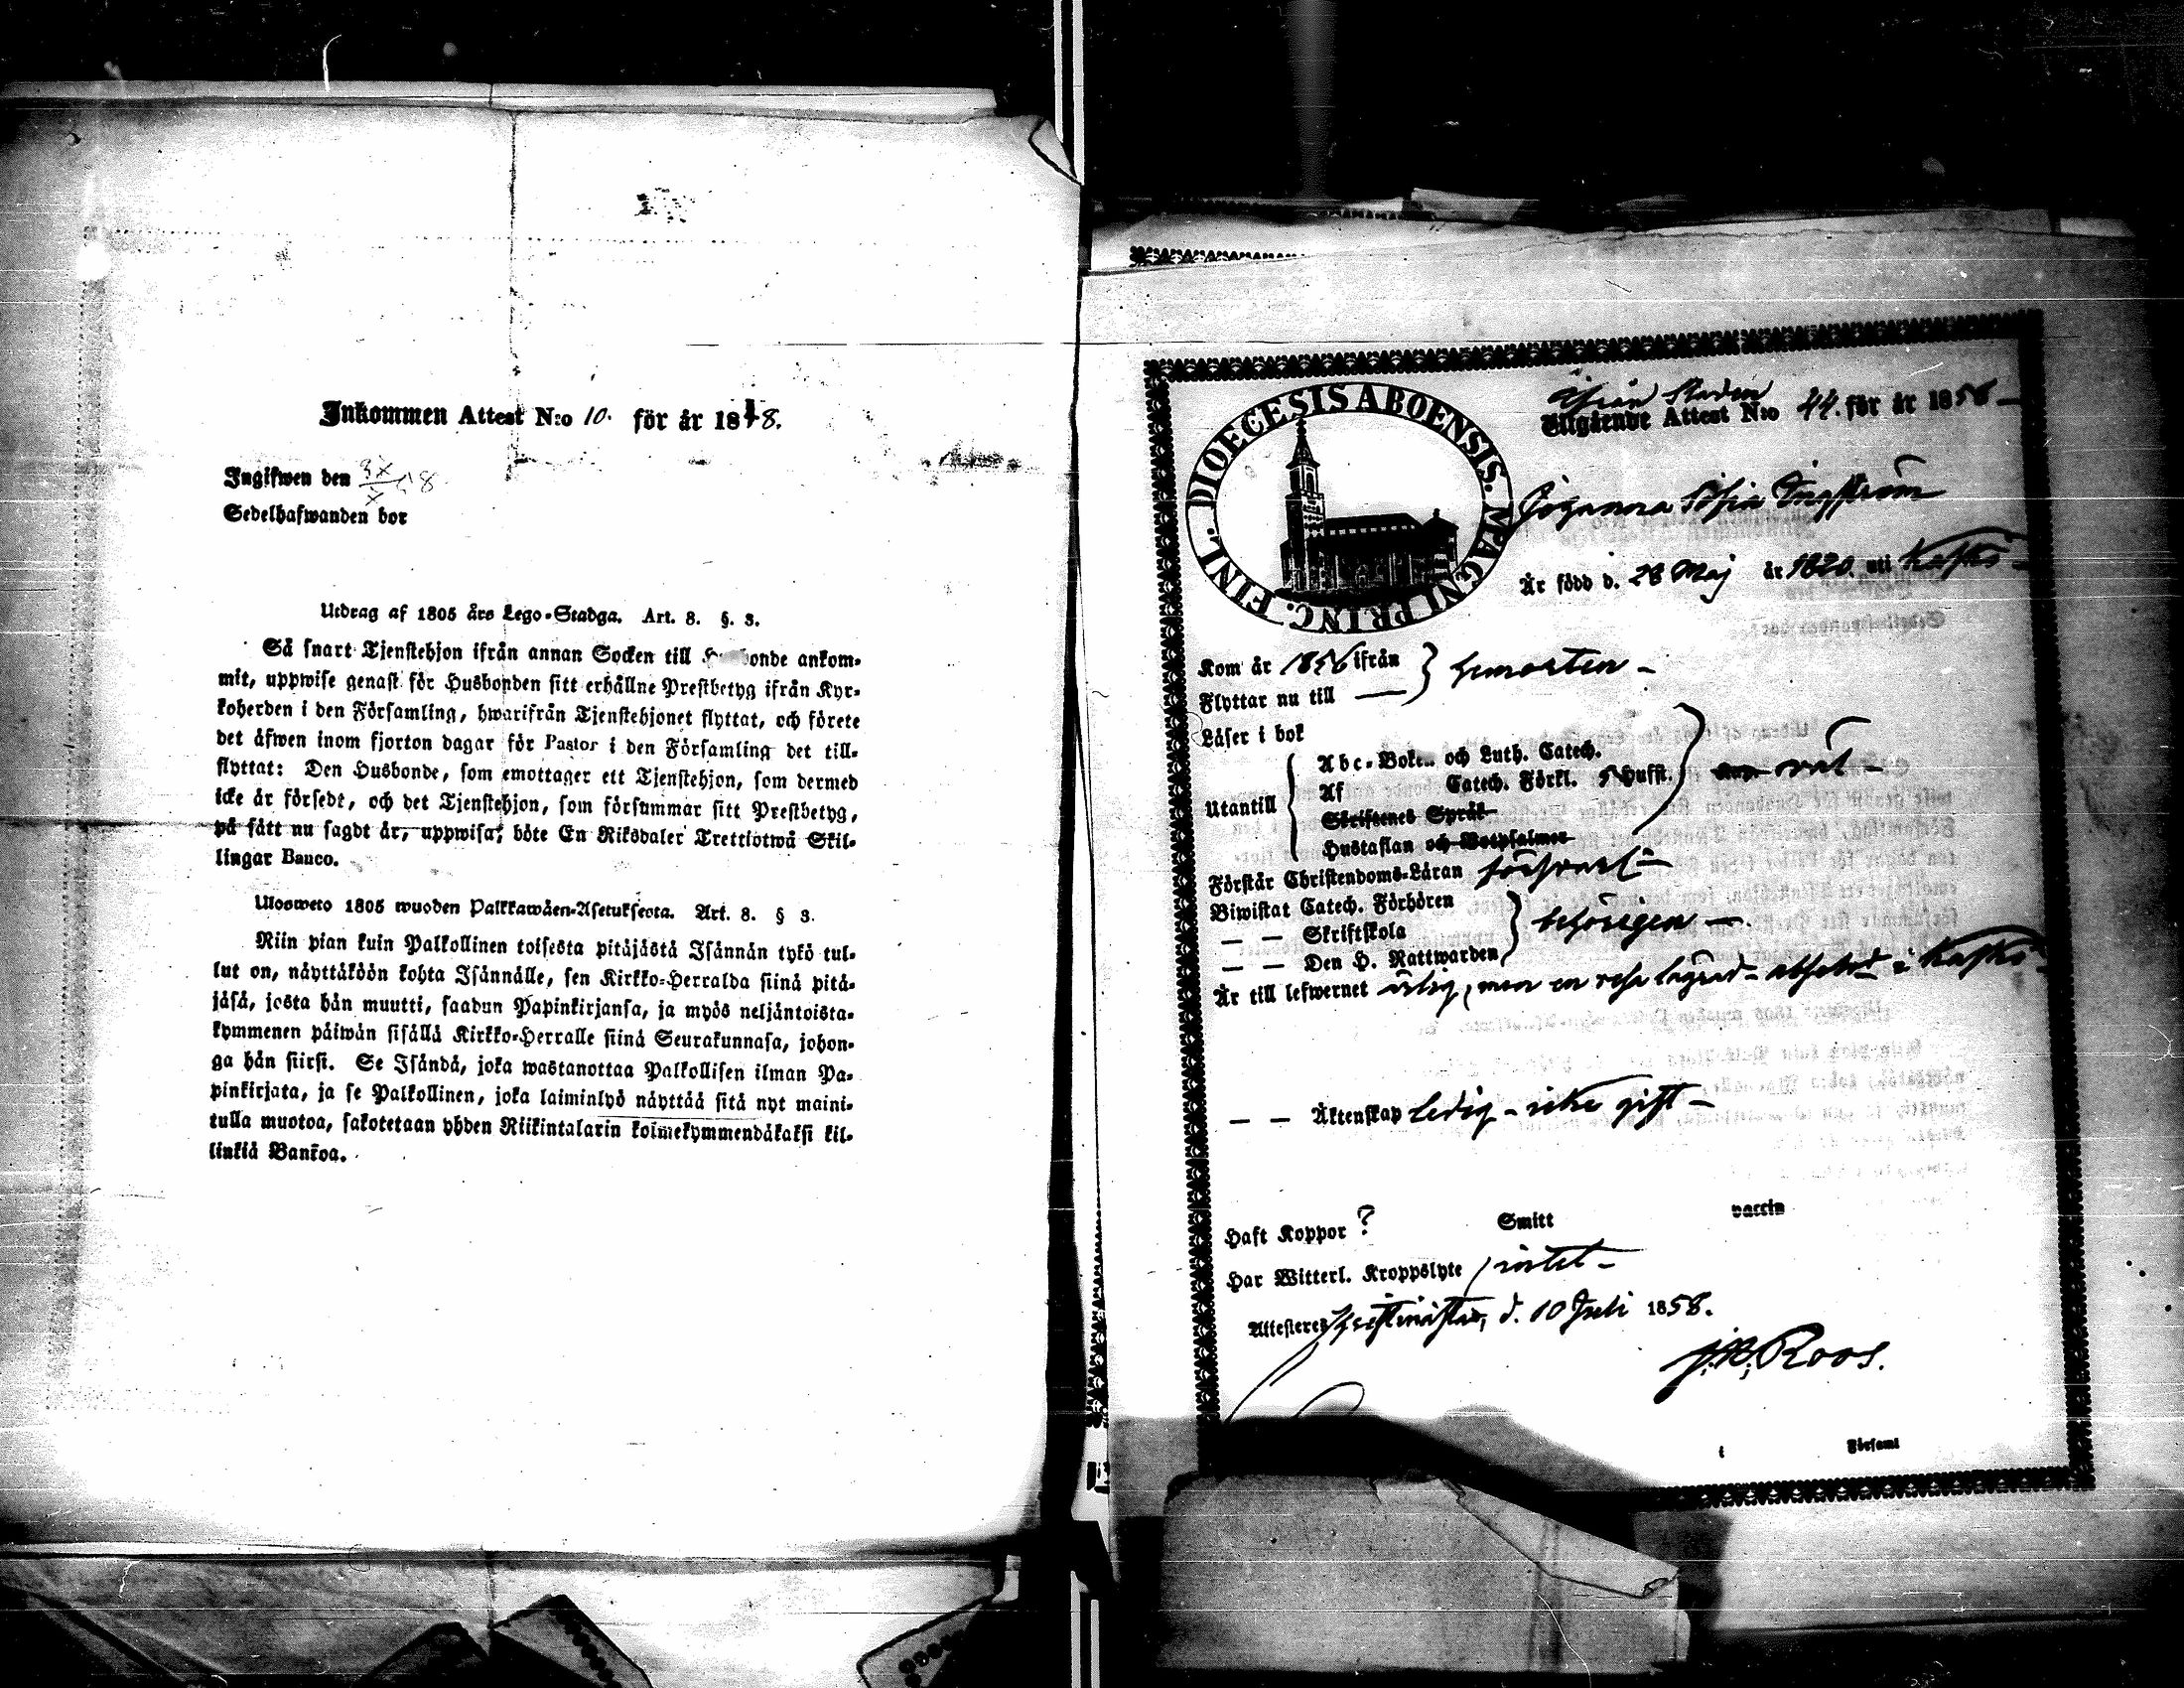 Inkommen Attest N:o 10. för år 1858.
Ingifwen den
Sedelhafwanden bor
Utdrag af 1805 års Lego-Stadga. Art. 8. §. 3.
Så snart Tjenstehjon ifrån annan Socken till H bonde ankom-
mit, uppwise genast för Husbonden sitt erhållne Prestbetyg ifrån Kyr-
koherden i den Församling, hwarifrån Tjenstehjonet flyttat, och förete
det äfwen inom fjorton dagar för Pastor i den Församling det till-
flyttat: Den Husbonde, som emottager ett Tjenstehjon, som dermed
icke är försedt, och det Tjenstehjon, som försummar sitt Prestbetyg,
på sätt nu sagdt är, uppwisa, böte En Riksdaler Trettiotwå Skil-
lingar Banco.
Ulosweto 1805 wuoden Palkkawäen-Asetuksesta. Art. 8. § 3.
Niin pian kuin Palkollinen toisesta pitäjästä Isännän tykö tul-
lut on, näyttäköön kohta Isännälle, sen Kirkko-Herralda siinä pitä-
jäsä, josta hän muutti, saadun Papinkirjansa, ja myös neljäntoista-
kymmenen päiwän sisällä Kirkko-Herralle siinä Seurakunnasa, johon-
ga hän siirsi. Se Isändä, joka wastanottaa Palkollisen ilman Pa-
pinkirjata, ja se Palkollinen, joka laiminlyö näyttää sitä nyt maini-
tulla muotoa, sakotetaan yhden Riikintalarin kolmekymmendäkaksi kil-
linkiä Bankoa.
DIOECESIS ABOENSIS. MAGNI PRINC. FINL.
ifrån Staden
Utgående Attest N:o 44. för år 1858
Johanna Sofia Engström
Är född d. 28 Maj år 1820. uti Kaskö
Kom år 1856 ifrån } hemorten
Flyttar nu till —
Läser i bok
Utantill
Abc-Boken och Luth. Catech.
Af Catech. Förkl. 5 Hufst. } väl
Skriftenes Språk
Hustaflan och Botpsalmer
Förstår Christendoms-Läran försvarl.
Biwistat Catech. Förhören
— — Skriftskola } behörigen
— — Den H. Nattwarden
Är till lefwernet ärlig, men en absolv. i Kaskö
— — Äktenskap Ledig – icke gift –
Haft Koppor ? Smitt vaccin
Har Witterl. Kroppslyte intet –
Attesteres Christinestad, d. 10 Juli 1858.
Roos.
i Församl